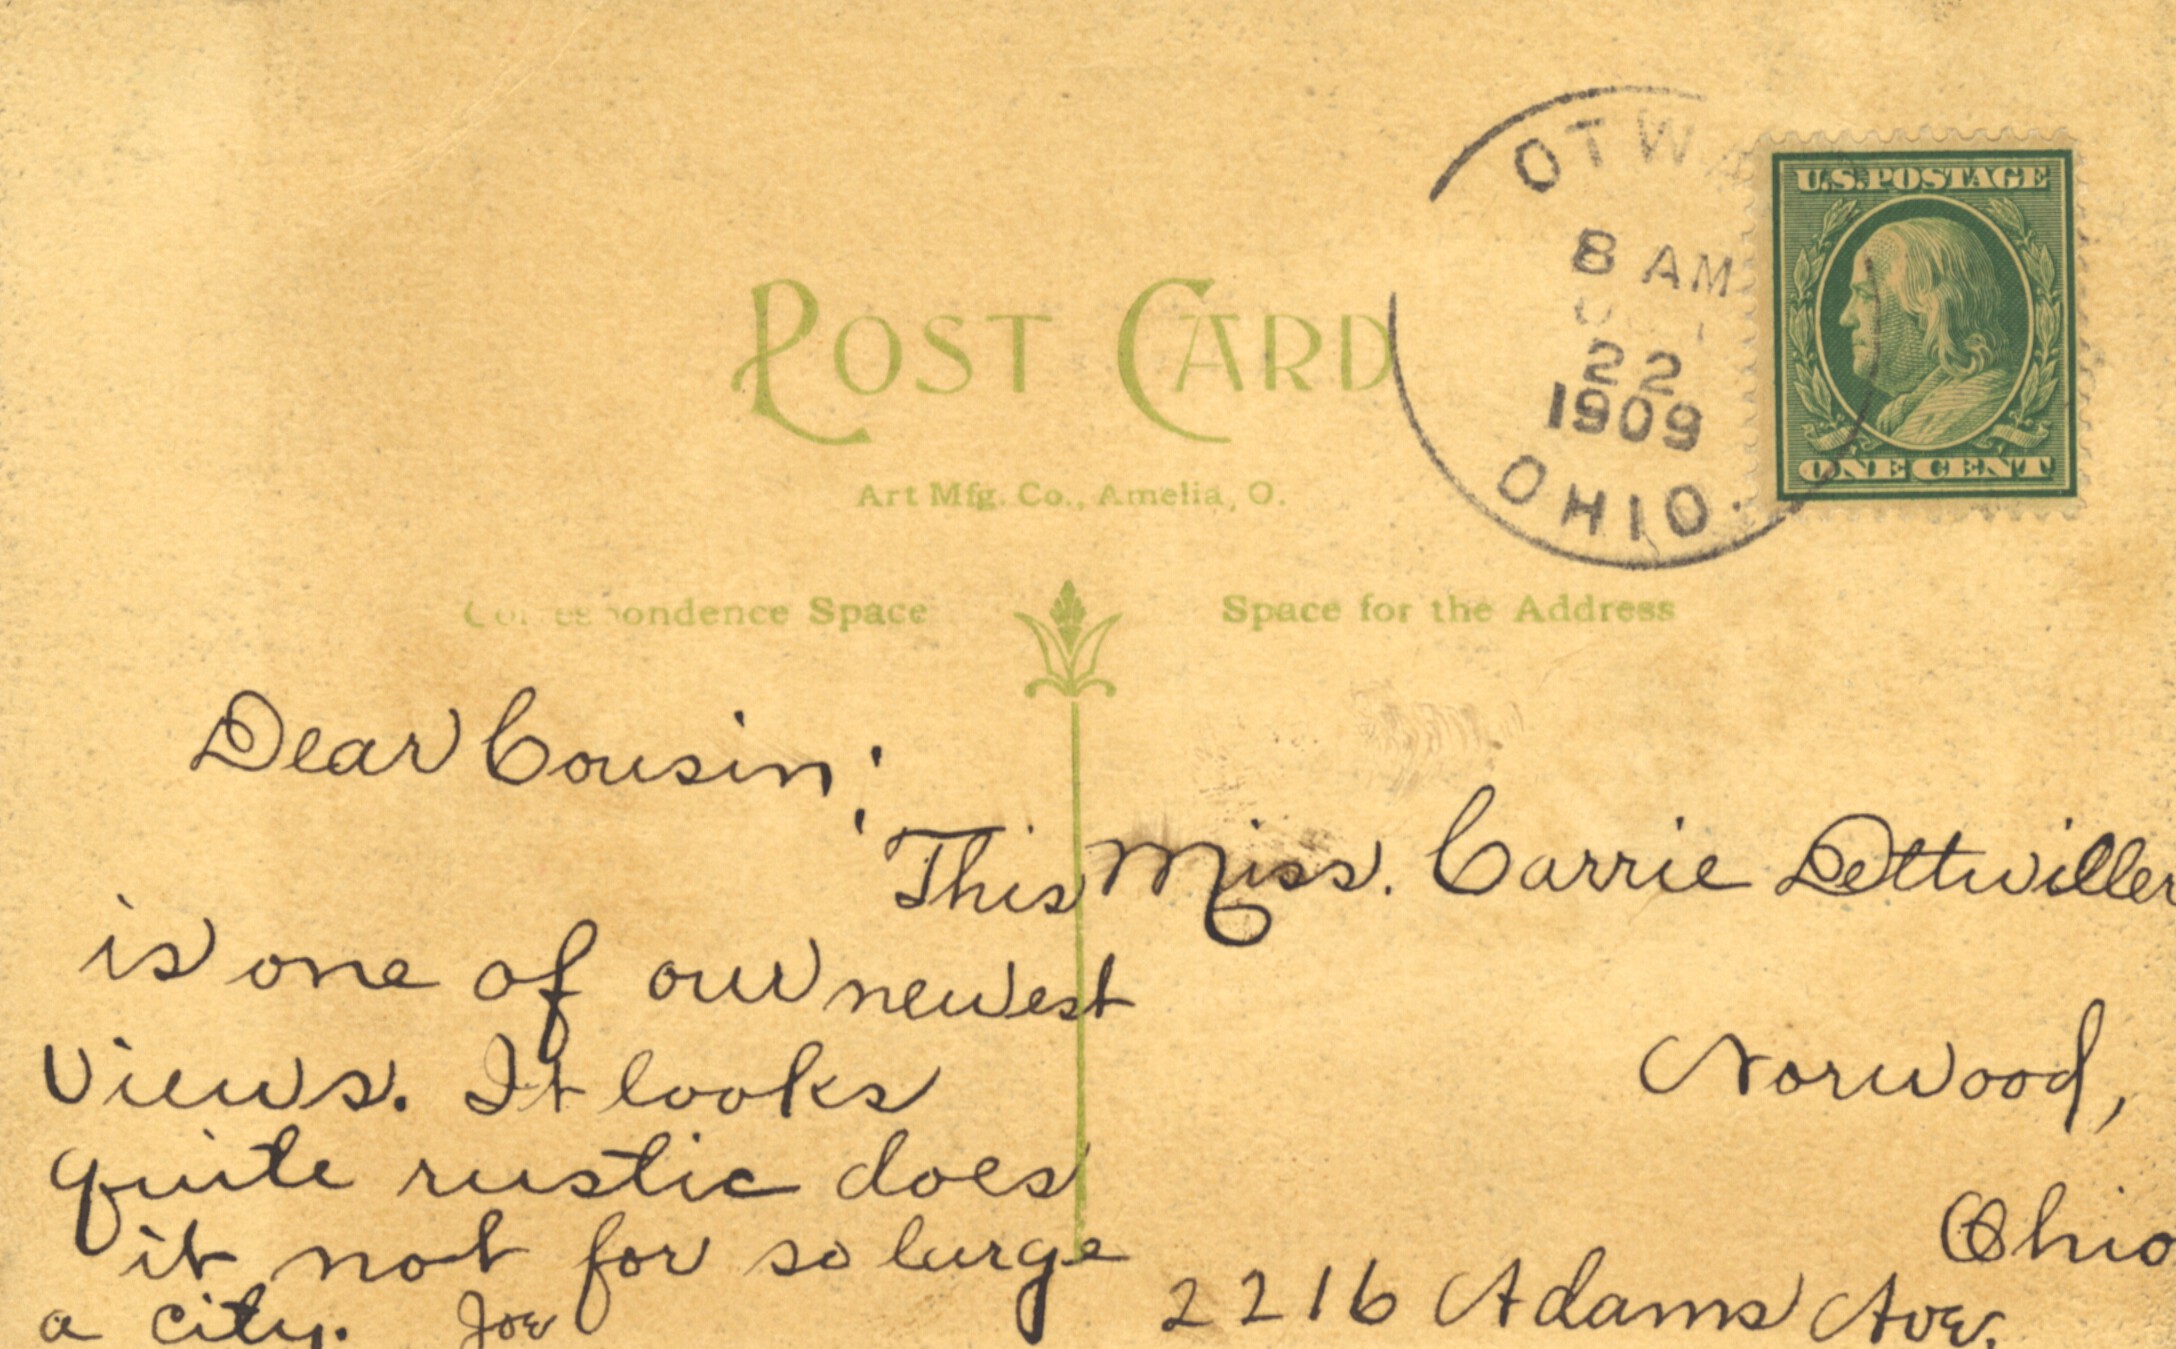 OTWA
8 AM
22
1909
OHIO.
U.S.POSTAGE
ONE CENT
POST CARD
Art Mfg. Co., Amelia, O.
Correspondence Space
Space for the Address
Dear Cousin:
This
is one of our newest
views. It looks
quite rustic does
it not for so large
a city. Joe
Miss. Carrie Dettwiller
Norwood,
Ohio
2216 Adams Ave.